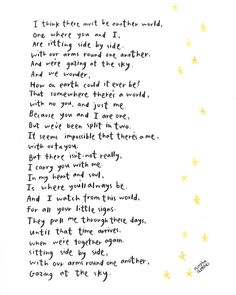 I think there must be another world,
One where you and I,
Are sitting side by side.
With our arms round one another.
And we're gazing at the sky.
And we wonder,
How on earth could it ever be!
That somewhere there's a world,
with no you, and just me.
Because you and I are one,
But we've been split in two.
It seems impossible that there's a me.
With out a you.
But there isn't really,
I carry you with me.
In my heart and soul,
Is where you'll always be.
And I watch from this world,
For all your little signs.
They pull me through these days,
until that time arrives.
when we're together again.
sitting side by side,
with our arms round one another,
Gazing at the sky.